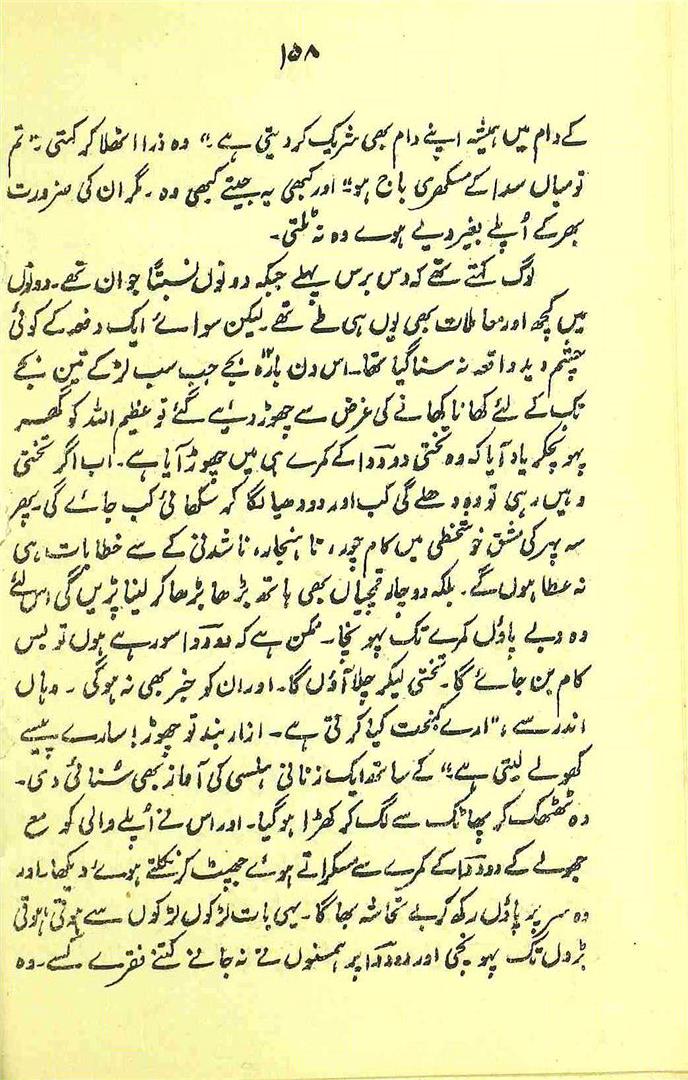 ۱۵۸
کے دام میں ہمیشہ اپنے دام بھی شریک کر دیتی ہے۔" وہ ذرا اٹھلا کر کہتی۔ "تم
تو میاں سدا کے مسکھری باج ہو" اور کبھی یہ جیتے کبھی وہ۔ مگر ان کی ضرورت
بھر کے اُپلے بغیر دیے ہوے وہ نہ ٹلتی۔
لوگ کہتے تھے کہ دس برس پہلے جبکہ دونوں نسبتاً جوان تھے۔ دونوں
میں کچھ اور معاملات بھی یوں ہی طے تھے۔ لیکن سواے ایک دفعہ کے کوئی
چشم دید واقعہ نہ سنا گیا تھا۔ اس دن بارہ بجے جب سب لڑکے تین بجے
تک کے لئے کھانا کھانے کی غرض سے چھوڑ دیئے گئے تو عظیم اللہ کو گھر
پہونچکر یاد آیا کہ وہ تختی دودوا کے کمرے ہی میں چھوڑ آیا ہے۔ اب اگر تختی
وہیں رہی تو وہ دھلے گی کب اور دودھیا لگا کر سکھائی کب جائے گی۔ پھر
سہ پہر کی مشق خوشخطی میں کام چور، نا ہنجار، ناشدنی کے سے خطابات ہی
نہ عطا ہوں گے۔ بلکہ دو چار قمچیاں بھی ہاتھ بڑھا بڑھا کر لینا پڑیں گی اس لئے
وہ دبے پاؤں کمرے تک پہونچا۔ ممکن ہے کہ دودوا سو رہے ہوں تو بس
کام بن جائے گا۔ تختی لیکر چلا آؤں گا۔ اور ان کو خبر بھی نہ ہوگی۔ وہاں
اندر سے، "ارے کمبخت کیا کرتی ہے۔ ازاربند تو چھوڑ! سارے پیسے
کھولے لیتی ہے" کے ساتھ ایک زنانی ہنسی کی آواز بھی سُنائی دی۔
وہ ٹھٹھک کر پھاٹک سے لگ کر کھڑا ہوگیا۔ اور اس نے اُپلے والی کو مع
جھولے کے دودوا کے کمرے سے مسکراتے ہوئے جھپٹ کر نکلتے ہوئے دیکھا۔ اور
وہ سر پر پاؤں رکھ کر بے تحاشہ بھاگا۔ یہی بات لڑکوں لڑکوں سے ہوتی ہوتی
بڑوں تک پہونچی اور دودوا پر ہمسنوں نے نہ جانے کتنے فقرے کسے۔ وہ